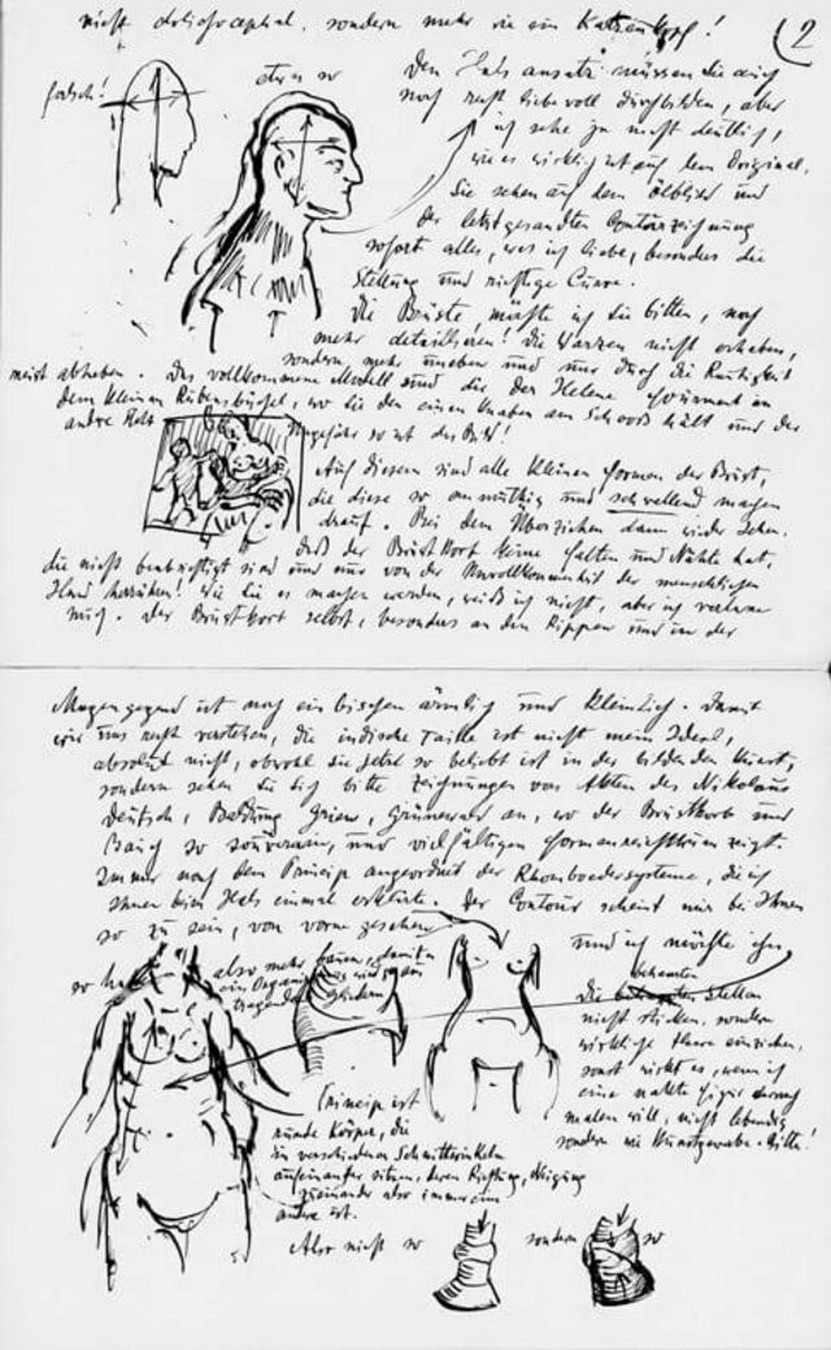 nicht dolichocephal, sondern mehr wie ein Katzenkopf!
(2
falsch!
etwa so
Den Hals ansatz müssen Sie auch
noch recht liebevoll durchbilden, aber
ich sehe ja nicht deutlich,
wie es wirklich ist auf dem Original.
Sie sehen auf dem Ölbild und
der letztgesandten Contourzeichnung
sofort alles, was ich liebe, besonders die
Stellung und richtige Curve.
Die Brüste, möchte ich Sie bitten, noch
mehr detaillieren! Die Warzen nicht erhaben,
sondern mehr uneben und nur durch die Rauhigkeit
meist abheben. Das vollkommene Modell sind die der Helene Fourment in
dem kleinen Rubensbüchel, wo sie den einen Knaben am Schooß hält und der
andre steht
Ungefähr so ist das Bild!
Auf diesem sind alle kleinen Formen der Brust,
die diese so anmuthig und schwellend machen
drauf. Bei dem Überziehen dann wieder sehen,
daß der Brustkorb keine Falten und Nähte hat,
die nicht beabsichtigt sind und nur von der Unvollkommenheit der menschlichen
Hand herrühren! Wie Sie es machen werden, weiß ich nicht, aber ich verlasse
mich. Der Brustkorb selbst, besonders an den Rippen und in der
Magengegend ist noch ein bischen ärmlich und kleinlich. Damit
wir uns recht verstehen, die indische Taille ist nicht mein Ideal,
absolut nicht, obwohl sie jetzt so beliebt ist in der bildenden Kunst,
sondern sehen Sie sich bitte Zeichnungen von Akten des Nikolaus
Deutsch, Baldung Grien, Grünewald an, wo der Brustkorb und
Bauch so souverain, und vielfältigen Formenreichthum zeigt.
Immer nach dem Princip angeordnet der Rhomboedersysteme, die ich
Ihnen beim Hals einmal erklärte. Der Contour scheint mir bei Ihnen
so zu sein, von vorne gesehen
und ich möchte ihn
so
also mehr bauen, damit
ein Organismus
tragenden Gliedern
Die behaarten Stellen
nicht sticken, sondern
wirkliche Haare einziehen,
sonst wirkt es, wenn ich
eine nackte Figur darnach
malen will, nicht lebendig
sondern wie Kunstgewerbe. Bitte!
Princip ist
runde Körper, die
in verschiedenen Schnittwinkeln
aufeinander sitzen, deren Richtung, Neigung
zueinander also immer eine
andre ist.
Also nicht so
sondern
so